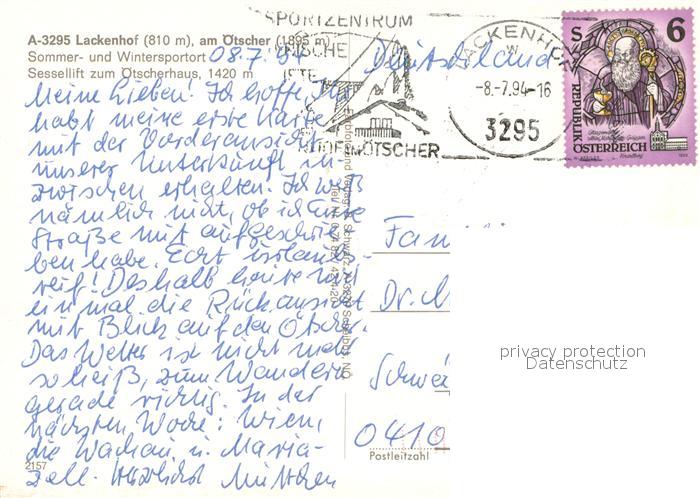 SPORTZENTRUM
A-3295 Lackenhof (810 m), am Ötscher (1895 m)
Sommer- und Wintersportort
Sessellift zum Ötscherhaus, 1420 m
08.7.94
Deutschland
LACKENHOF
-8.-7.94-16
3295
ÖTSCHER
S 6
REPUBLIK
ÖSTERREICH
Meine Lieben! Ich hoffe, Ihr
habt meine erste Karte
mit der Vorderansicht
unserer Unterkunft in-
zwischen erhalten. Ich weiß
nämlich nicht, ob ich Eure
Straße mit aufgeschrie-
ben habe. Echt urlaubs-
reif! Deshalb heute noch
einmal die Rückansicht
mit Blick auf den Ötscher.
Das Wetter ist nicht mehr
so heiß, zum Wandern
gerade richtig. In der
nächsten Woche: Wien,
die Wachau u. Maria-
zell. Herzlichst
2157
Fam
Dr. M
Schwä
0410
Postleitzahl
privacy protection
Datenschutz